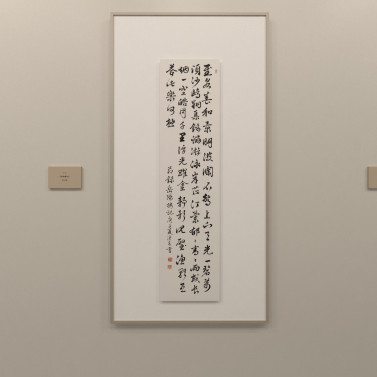 至若春和景明波瀾不驚上下天光一碧萬
頃沙鷗翔集錦鱗游泳岸芷汀蘭郁〻青〻而或長
煙一空皓月千里浮光躍金靜影沉璧漁歌互
答此樂何極
節錄岳陽樓記